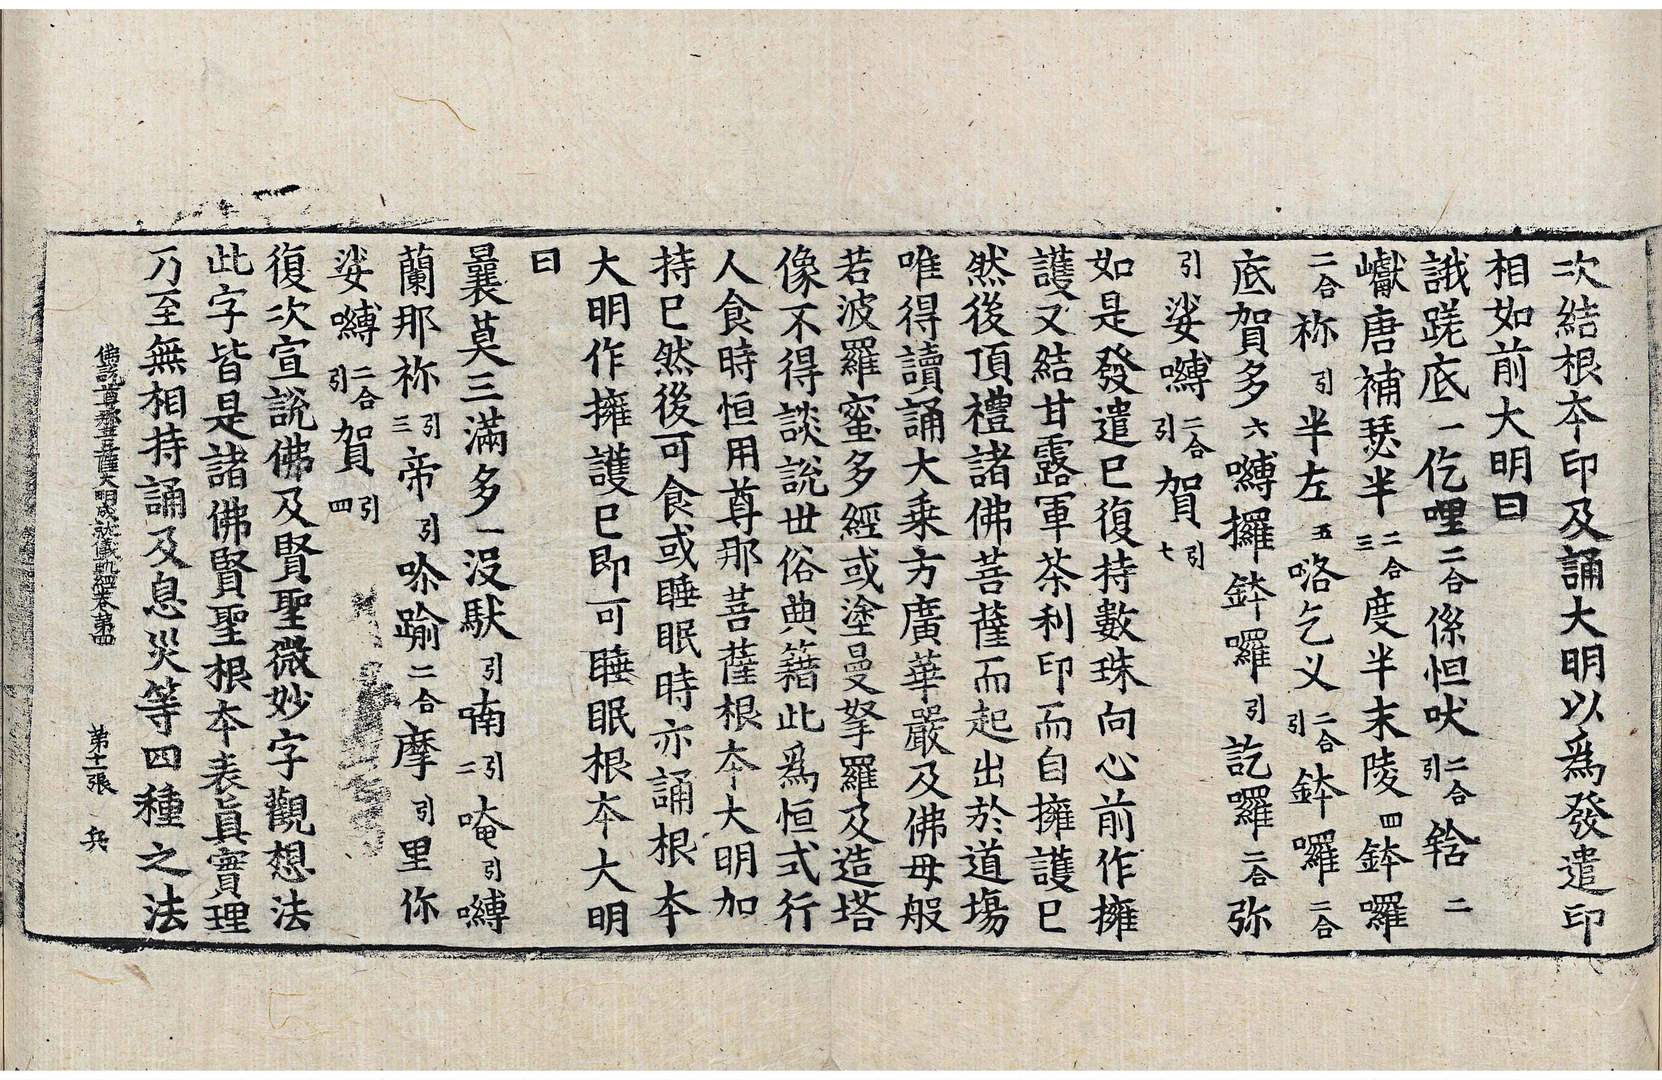 次結根本印及誦大明以爲發遣印
相如前大明曰
誐蹉底一仡哩二合係怛吠二合引𨧀二
巘唐補瑟半二合三度半末陵四鉢囉
二合祢引半左五咯乞义二合引鉢囉二合
底賀多六嚩攞鉢囉引訖囉二合弥
引娑嚩二合引賀引七
如是發遣已復持數珠向心前作擁
護又結甘露軍茶利印而自擁護已
然後頂禮諸佛菩薩而起出於道塲
唯得讀誦大乗方廣華嚴及佛母般
若波羅蜜多經或塗曼拏羅及造塔
像不得談說世俗典籍此爲恒式行
人食時恒用尊那菩薩根本大明加
持已然後可食或睡眠時亦誦根本
大明作擁護已即可睡眠根本大明
曰
曩莫三滿多一没馱引喃引二唵引嚩
蘭那祢引三帝引吩踰二合摩引里你
娑嚩二合引賀引四
復次宣說佛及賢聖微妙字觀想法
此字皆是諸佛賢聖根本表眞實理
乃至無相持誦及息災等四種之法
佛說尊那菩薩大明成就儀軌經卷第四 第十一張 兵